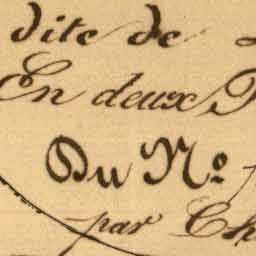 dite de
En deux
Du N.º
par Ch